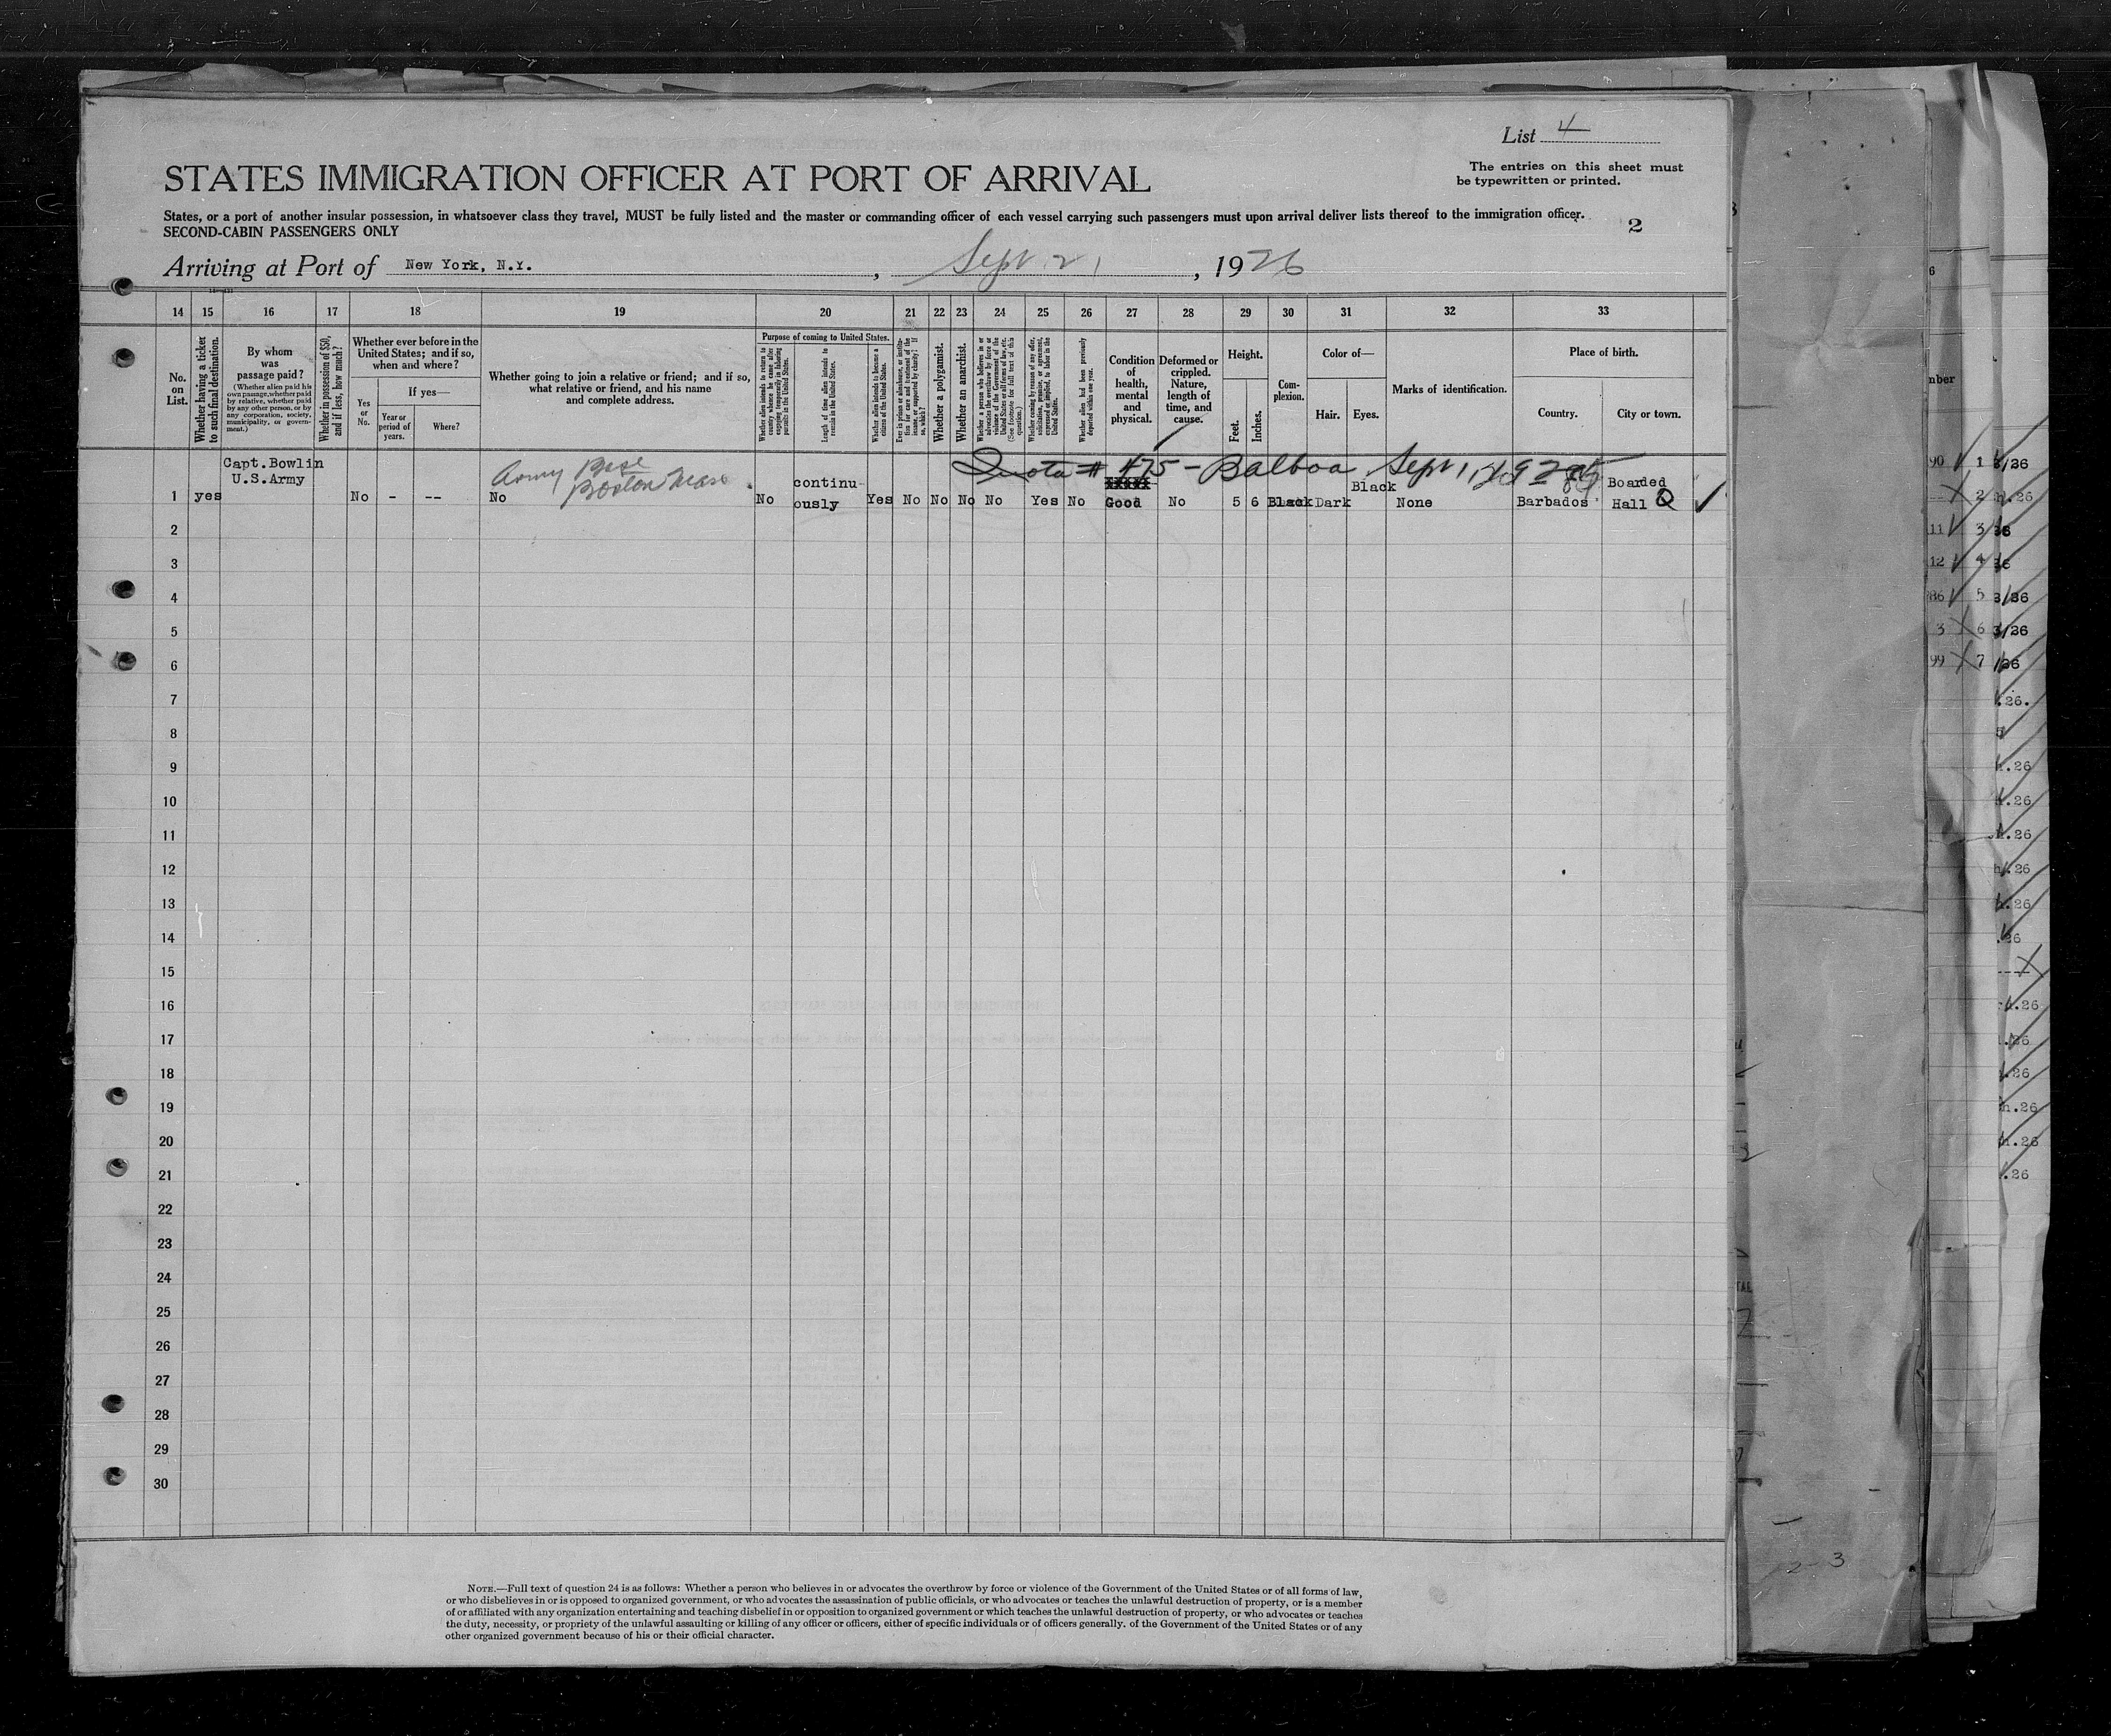 List 4
The entries on this sheet must
be typewritten or printed.
STATES IMMIGRATION OFFICER AT PORT OF ARRIVAL
States, or a port of another insular possession, in whatsoever class they travel, MUST be fully listed and the master or commanding officer of each vessel carrying such passengers must upon arrival deliver lists thereof to the immigration officer.
SECOND-CABIN PASSENGERS ONLY
2
Arriving at Port of New York, N.Y., Sept 21, 1926
14 15 16 17 18 19 20 21 22 23 24 25 26 27 28 29 30 31 32 33
No. on List.
Whether having a ticket to such final destination.
By whom was passage paid?
(Whether alien paid his own passage, whether paid by relative, whether paid by any other person, or by any corporation, society, municipality, or government.)
Whether in possession of $50, and if less, how much?
Whether ever before in the United States; and if so, when and where?
Yes or No.
If yes—
Year or period of years.
Where?
Whether going to join a relative or friend; and if so, what relative or friend, and his name and complete address.
Purpose of coming to United States.
Whether alien intends to return to country whence he came after engaging temporarily in laboring pursuits in the United States.
Length of time alien intends to remain in the United States.
Whether alien intends to become a citizen of the United States.
Ever in prison or almshouse, or institution for care and treatment of the insane, or supported by charity? If so, which?
Whether a polygamist.
Whether an anarchist.
Whether a person who believes in or advocates the overthrow by force or violence of the Government of the United States or all forms of law, etc. (See footnote for full text of this question.)
Whether coming by reason of any offer, solicitation, promise, or agreement, expressed or implied, to labor in the United States.
Whether alien had been previously deported within one year.
Condition of health, mental and physical.
Deformed or crippled. Nature, length of time, and cause.
Height.
Feet.
Inches.
Complexion.
Color of—
Hair.
Eyes.
Marks of identification.
Place of birth.
Country.
City or town.
Quota # 475 - Balboa Sept 1,
Capt. Bowlin
U.S.Army
Army Base
Boston Mass.
1 yes No - -- No No continuously Yes No No No No Yes No Good No 5 6 Black Dark Black None Barbados Boarded Hall Q
2
3
4
5
6
7
8
9
10
11
12
13
14
15
16
17
18
19
20
21
22
23
24
25
26
27
28
29
30
NOTE.—Full text of question 24 is as follows: Whether a person who believes in or advocates the overthrow by force or violence of the Government of the United States or of all forms of law,
or who disbelieves in or is opposed to organized government, or who advocates the assassination of public officials, or who advocates or teaches the unlawful destruction of property, or is a member
of or affiliated with any organization entertaining and teaching disbelief in or opposition to organized government or which teaches the unlawful destruction of property, or who advocates or teaches
the duty, necessity, or propriety of the unlawful assaulting or killing of any officer or officers, either of specific individuals or of officers generally. of the Government of the United States or of any
other organized government because of his or their official character.